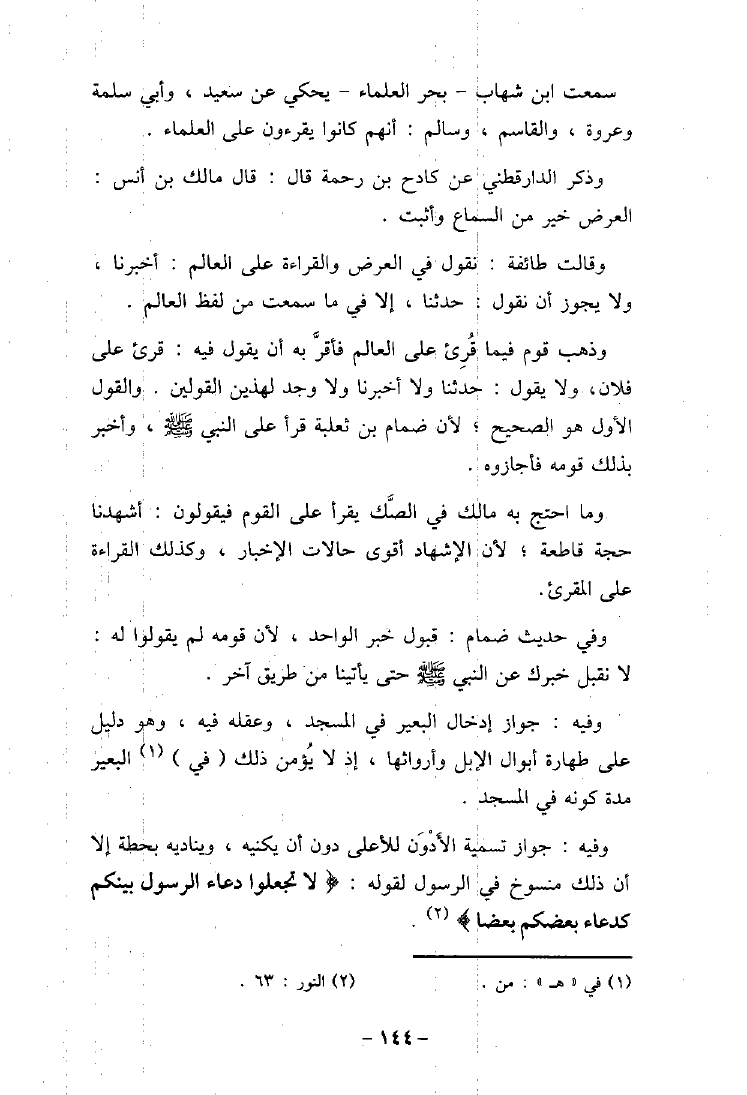 سمعت ابن شهاب - بحر العلماء - يحكي عن سعيد ، وأبي سلمة
وعروة ، والقاسم ، وسالم : أنهم كانوا يقرءون على العلماء .
وذكر الدارقطني عن كادح بن رحمة قال : قال مالك بن أنس :
العرض خير من السماع وأثبت .
وقالت طائفة : نقول في العرض والقراءة على العالم : أخبرنا ،
ولا يجوز أن نقول : حدثنا ، إلا في ما سمعت من لفظ العالم .
وذهب قوم فيما قُرِئ على العالم فأقرَّ به أن يقول فيه : قرئ على
فلان، ولا يقول : حدثنا ولا أخبرنا ولا وجد لهذين القولين . والقول
الأول هو الصحيح ؛ لأن ضمام بن ثعلبة قرأ على النبي ﷺ ، وأخبر
بذلك قومه فأجازوه .
وما احتج به مالك في الصَّك يقرأ على القوم فيقولون : أشهدنا
حجة قاطعة ؛ لأن الإشهاد أقوى حالات الإخبار ، وكذلك القراءة
على المقرئ.
وفي حديث ضمام : قبول خبر الواحد ، لأن قومه لم يقولوا له :
لا نقبل خبرك عن النبي ﷺ حتى يأتينا من طريق آخر .
وفيه : جواز إدخال البعير في المسجد ، وعقله فيه ، وهو دليل
على طهارة أبوال الإبل وأرواثها ، إذ لا يُؤمن ذلك ( في ) (١) البعير
مدة كونه في المسجد .
وفيه : جواز تسمية الأدْوَن للأعلى دون أن يكنيه ، ويناديه بحطة إلا
أن ذلك منسوخ في الرسول لقوله : ﴿ لا تجعلوا دعاء الرسول بينكم
كدعاء بعضكم بعضا ﴾ (٢) .
(١) في « هـ » : من . (٢) النور : ٦٣ .
- ١٤٤ -